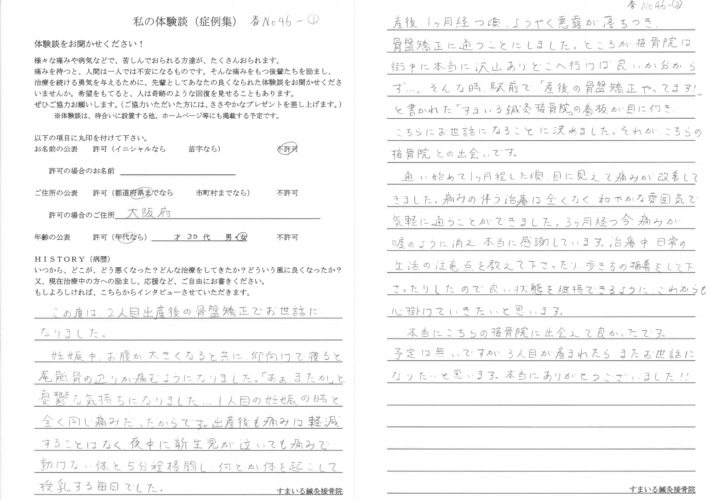 私の体験談（症例集） 春No46-①
体験談をお聞かせください！
様々な痛みや病気などで、苦しんでおられる方達が、たくさんおられます。
痛みを持つと、人間は一人では不安になるものです。そんな痛みをもつ後輩たちを励まし、
治療を続ける勇気を与えるために、先輩としてあなたの良くなられた体験談をお聞かせください
ませんか。希望をもてると、人は奇跡のような回復を見せることもあります。
ぜひご協力お願いします。（ご協力いただいた方には、ささやかなプレゼントを差し上げます。）
※体験談は、待合いに設置する他、ホームページ等にも掲載する予定です。
以下の項目に丸印を付けて下さい。
お名前の公表 許可（イニシャルなら 苗字なら） 不許可
許可の場合のお名前
ご住所の公表 許可（都道府県までなら 市町村までなら） 不許可
許可の場合のご住所 大阪府
年齢の公表 許可（年代なら） 才 30代 男・女 不許可
ＨＩＳＴＯＲＹ（病歴）
いつから、どこが、どう悪くなった？どんな治療をしてきたか？どういう風に良くなったか？
又、現在治療中の方への励まし、応援など、ご自由にお書きください。
もしよろしければ、こちらからインタビューさせていただきます。
この度は、2人目出産後の骨盤矯正でお世話に
なりました。
妊娠中、お腹が大きくなると共に、仰向けで寝ると
尾骶骨の辺りが痛むようになりました。「あぁまたか」と
憂鬱な気持ちになりました…1人目の妊娠の時と
全く同じ痛みだったからです。出産後も痛みは軽減
することはなく、夜中に新生児が泣いても痛みで
動けない体と5分程格闘し、何とか体を起こして
授乳する毎日でした。
すまいる鍼灸接骨院
春No46-②
産後、1ヶ月経つ頃、ようやく悪露が落ちつき、
骨盤矯正に通うことにしました。ところが接骨院は
街中に本当に沢山ありどこへ行けば良いか分から
ず…。そんな時、駅前で、「産後の骨盤矯正やってます！」
と書かれた「すまいる鍼灸接骨院」の看板が目に付き、
こちらにお世話になることに決めました。それがこちらの
接骨院との出会いです。
通い始めて1ヶ月程した頃、目に見えて痛みが改善して
きました。痛みの伴う治療は全くなく和やかな雰囲気で
気軽に通うことができました。3ヶ月経つ今痛みが
嘘のように消え本当に感謝しています。治療中、日常の
生活の注意点を教えて下さったり、歩き方の指導をして下
さったりしたので良い状態を維持できるように、これからも
心掛けていきたいと思います。
本当にこちらの接骨院に出会えて良かったです。
予定は無いですが3人目が産まれたらまたお世話に
なりたいと思います。本当にありがとうございました!!
すまいる鍼灸接骨院